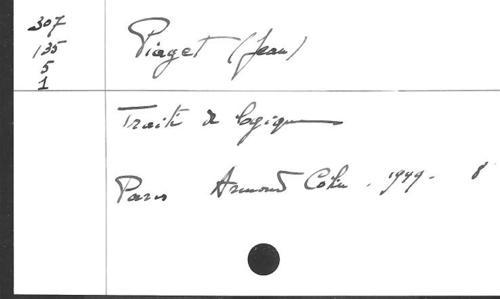 307
135
5
1
Piaget (Jean)
Traité de logique
Paris Armand Colin. 1949. 8°